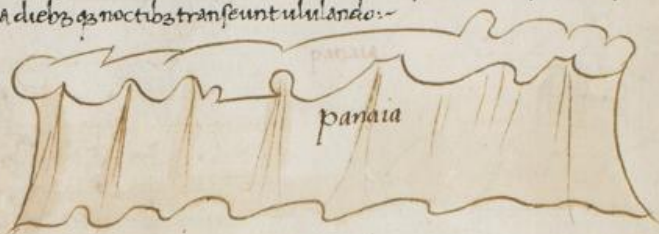 A diebꝫ qꝫ noctibꝫ transeunt ululando:~
panaia
panaia